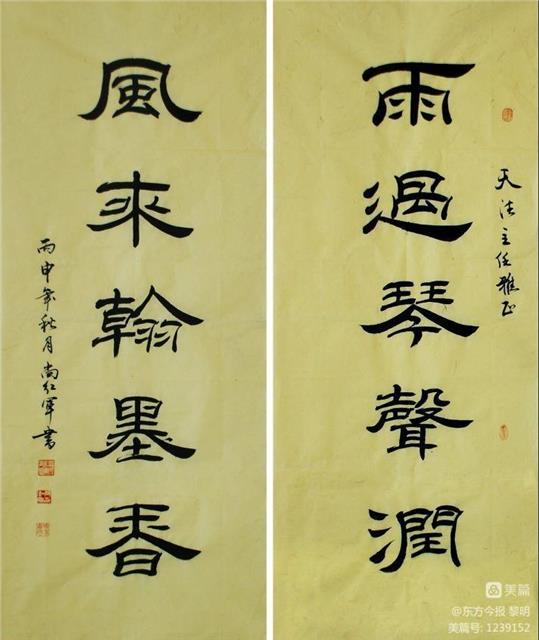 雨過琴聲潤
天法主任雅正
風来翰墨香
丙申年秋月尚红軍書
美篇
@东方今报 黎明
美篇号: 1239152